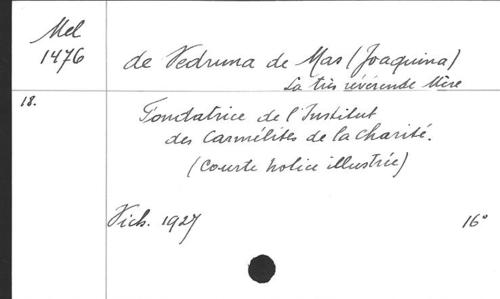 Mel
1476
de Vedruna de Mas (Joaquina)
La très révérende Mère
18.
Fondatrice de l'Institut
des Carmélites de la Charité.
(Courte notice illustrée)
Vich. 1927
16°